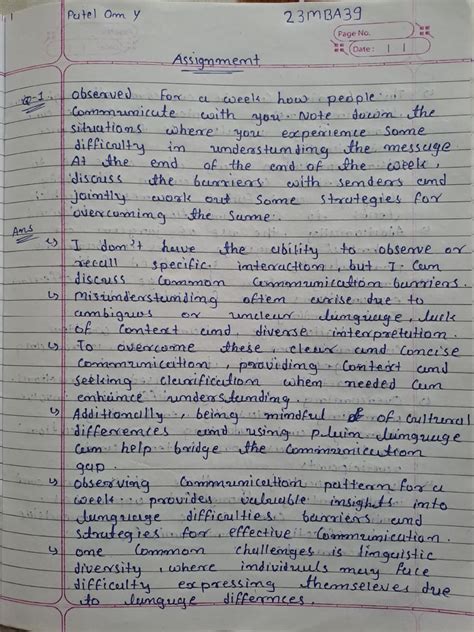 Patel Om Y
23MBA39
Page No.
Date: | |
Assignment
Q-1 observed For a week how people
Communicate with you. Note down the
situations where you experience some
difficulty in understanding the message
At the end of the end of the week,
discuss the barriers with senders and
jointly work out some strategies for
overcoming the same.
Ans
↳ I don't have the ability to observe or
recall specific interaction, but I can
discuss common communication barriers.
↳ misunderstanding often arise due to
ambigues or unclear language, luck
of context and, diverse interpretation.
↳ To overcome these, clear and concise
communication, providing context and
seeking clarification when needed can
enhance understanding.
↳ Additionally, being mindful of cultural
differences and using plain language
can help bridge the communication
gap.
↳ observing communication pattern for a
week provides valuable insights into
language difficulties barriers and
strategies for effective communication.
↳ one common challenges is linguistic
diversity, where individuals may face
difficulty expressing themseleves due
to lunguge differnces.